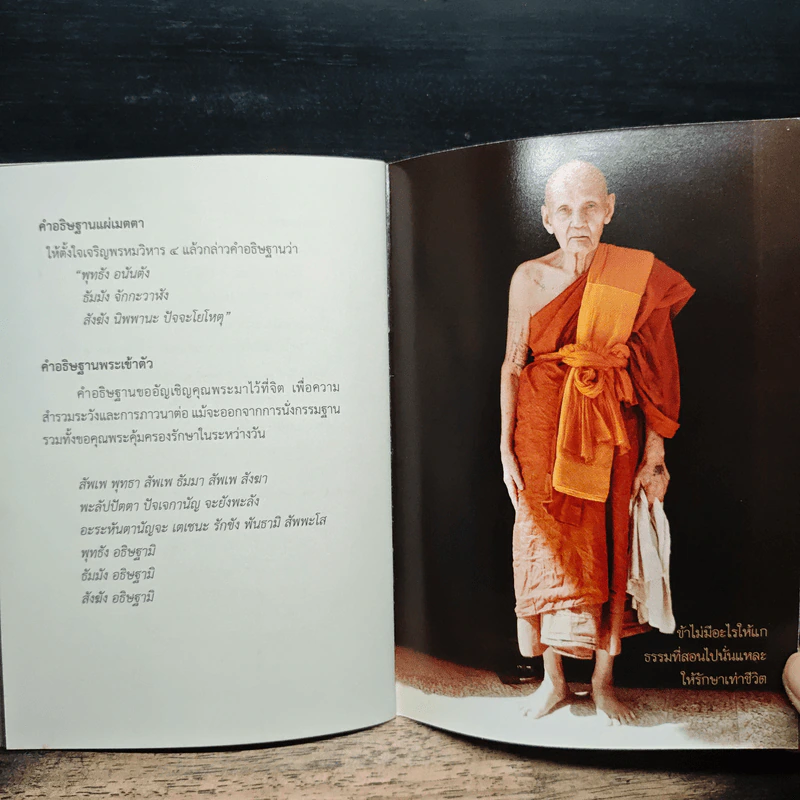 คำอธิษฐานแผ่เมตตา
ให้ตั้งใจเจริญพรหมวิหาร ๔ แล้วกล่าวคำอธิษฐานว่า
“พุทธัง อนันตัง
ธัมมัง จักกะวาฬัง
สังฆัง นิพพานะ ปัจจะโยโหตุ”
คำอธิษฐานพระเข้าตัว
คำอธิษฐานขออัญเชิญคุณพระมาไว้ที่จิต เพื่อความ
สำรวมระวังและการภาวนาต่อ แม้จะออกจากการนั่งกรรมฐาน
รวมทั้งขอคุณพระคุ้มครองรักษาในระหว่างวัน
สัพเพ พุทธา สัพเพ ธัมมา สัพเพ สังฆา
พะลัปปัตตา ปัจเจกานัญ จะยังพะลัง
อะระหันตานัญจะ เตเชนะ รักขัง พันธามิ สัพพะโส
พุทธัง อธิษฐามิ
ธัมมัง อธิษฐามิ
สังฆัง อธิษฐามิ
ข้าไม่มีอะไรให้แก
ธรรมที่สอนไปนั่นแหละ
ให้รักษาเท่าชีวิต